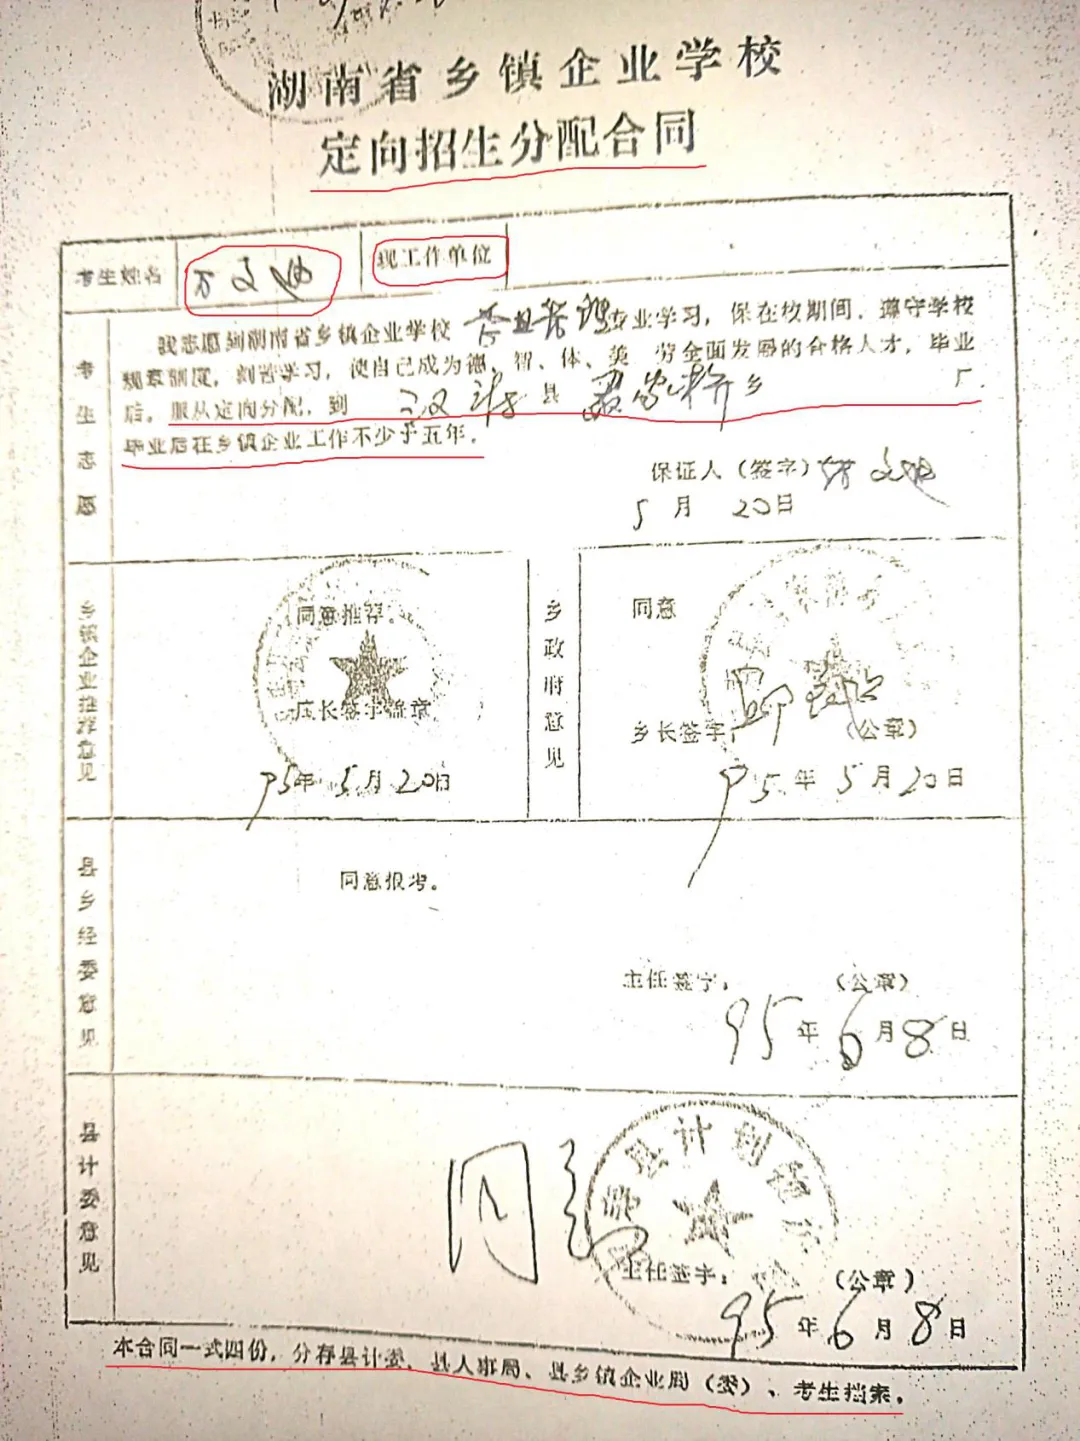 湖南省乡镇企业学校
定向招生分配合同
考生姓名 万文 现工作单位
考生志愿
我志愿到湖南省乡镇企业学校 企业管理专业学习，保在校期间，遵守学校
规章制度，刻苦学习，使自己成为德、智、体、美、劳全面发展的合格人才，毕业
后，服从定向分配，到 汉寿县 聂家桥乡 厂
毕业后在乡镇企业工作不少于五年。
保证人（签字）万文
5月 20日
乡镇企业推荐意见
同意推荐。
厂长签字盖章
95年5月20日
乡政府意见
同意
乡长签字： （公章）
95年5月20日
县乡经委意见
同意报考。
主任签字： （公章）
95年6月8日
县计委意见
同意
县计划委
主任签字： （公章）
95年6月8日
本合同一式四份，分存县计委、县人事局、县乡镇企业局（委）、考生档案。